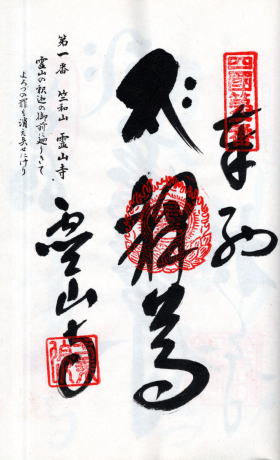 奉納
釈迦尊
霊山寺
第一番 竺和山 霊山寺
霊山の釈迦の御前に巡りきて
よろづの罪も消え失せにけり